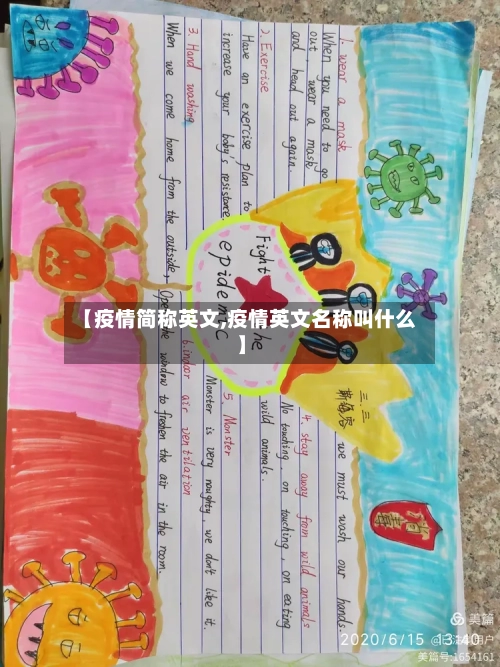 【疫情简称英文,疫情英文名称叫什么
】
1. wear a mask
When you need to go
out, wear a mask
and head out again.
2. Exercise
Have an exercise plan to
increase your baby's resistance
3. Hand washing
When we come home from the outside,
we must wash our hands
4. stay away from wild animals
No touching, on touching, on eating
wild animals.
5 Monster
Monster is very naughty, we don't like it.
6.indoor air ventilation
Open the window to freshen the air in the room.
Fight the
epidemic
三.三
美篇
2020/6/15 13:40
用户
美篇号:1654161